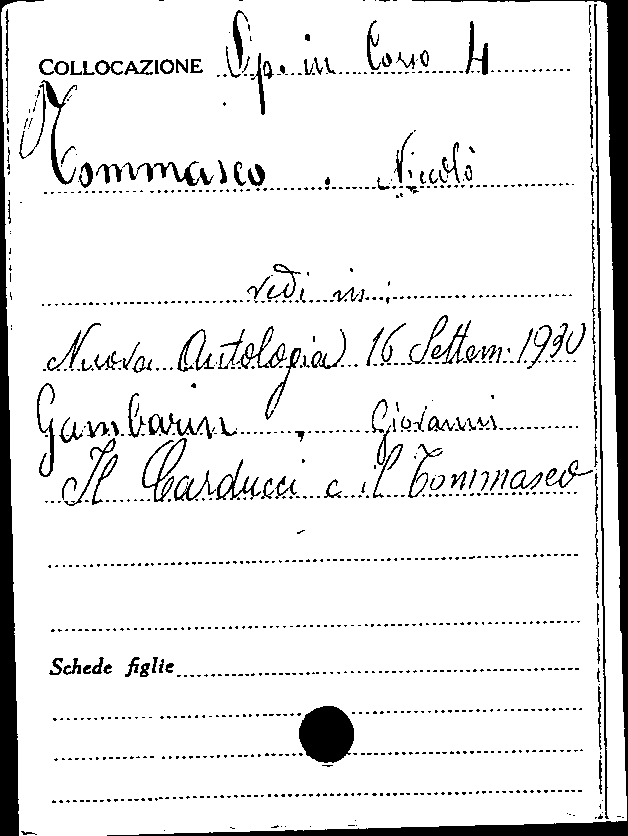 COLLOCAZIONE Sp. in Corso 4
Tommaseo, Niccolò
vedi in:
Nuova Antologia 16 Settem. 1930
Gambarin, Giovanni
Il Carducci e il Tommaseo
Schede figlie